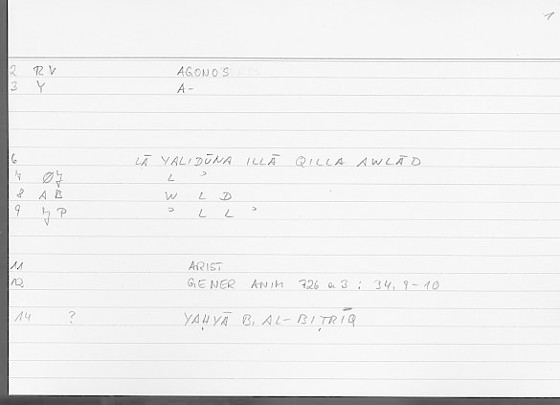 1
2 RV AGONOS
3 Y A-
6 LĀ YALIDŪNA ILLĀ QILLA AWLĀD
7 L ʾ
8 AB W L D
9 P ʾ L L ʾ
11 ARIST
12 GENER ANIM 726 a 3 : 34, 9-10
14 ? YAḤYĀ B. AL-BIṬRĪQ